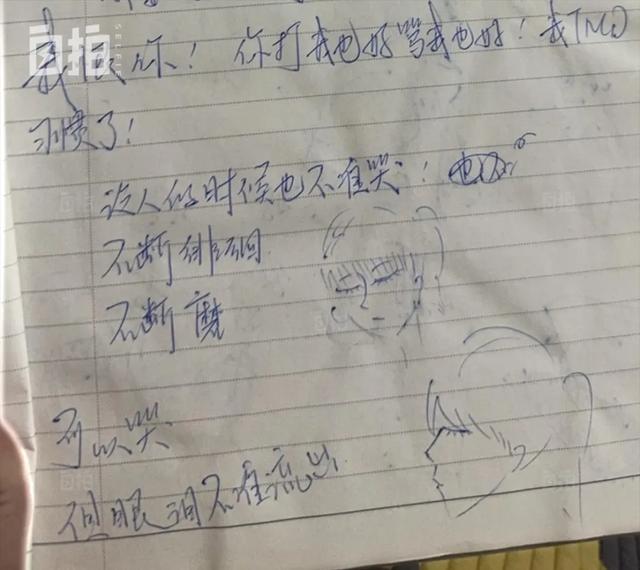 我恨你！你打我也好骂我也好！我TMD
习惯了！
没人的时候也不准哭！
不断徘徊
不断磨
可以哭
但眼泪不准流出